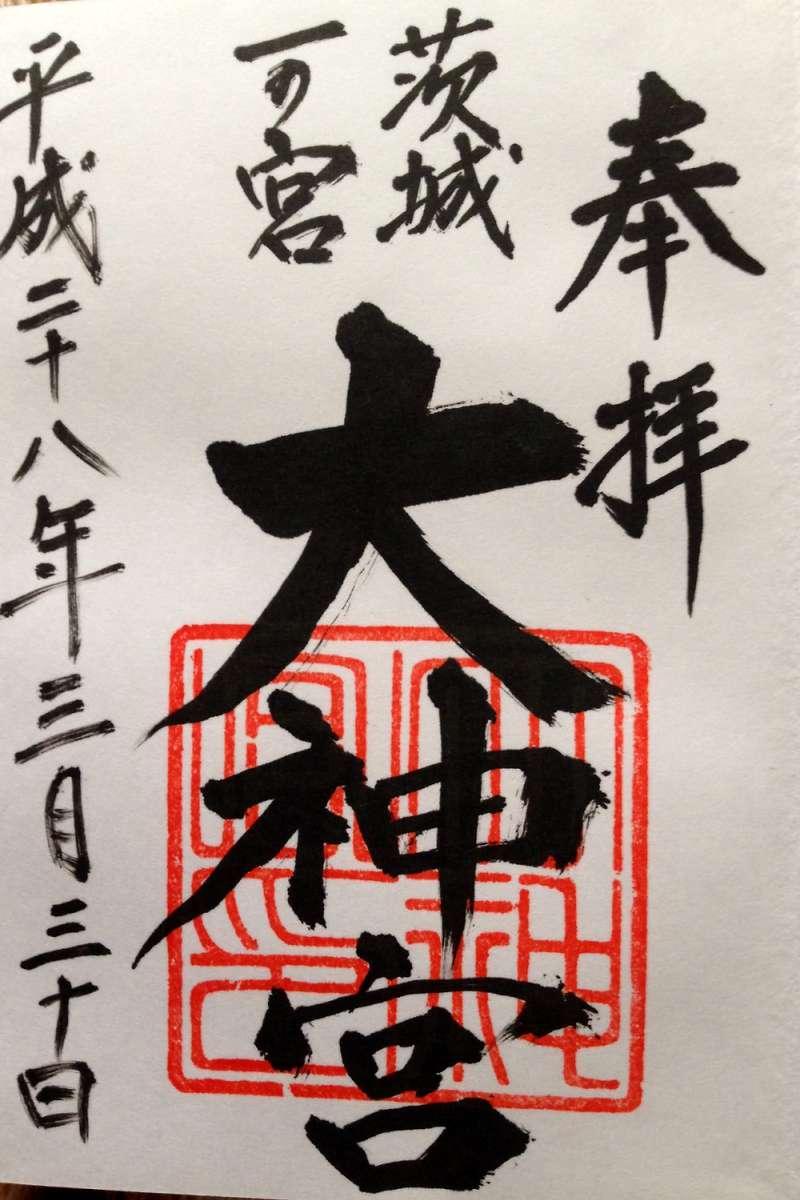 奉拝
茨城
一の宮
大神宮
平成二十八年三月三十日
大神宮印